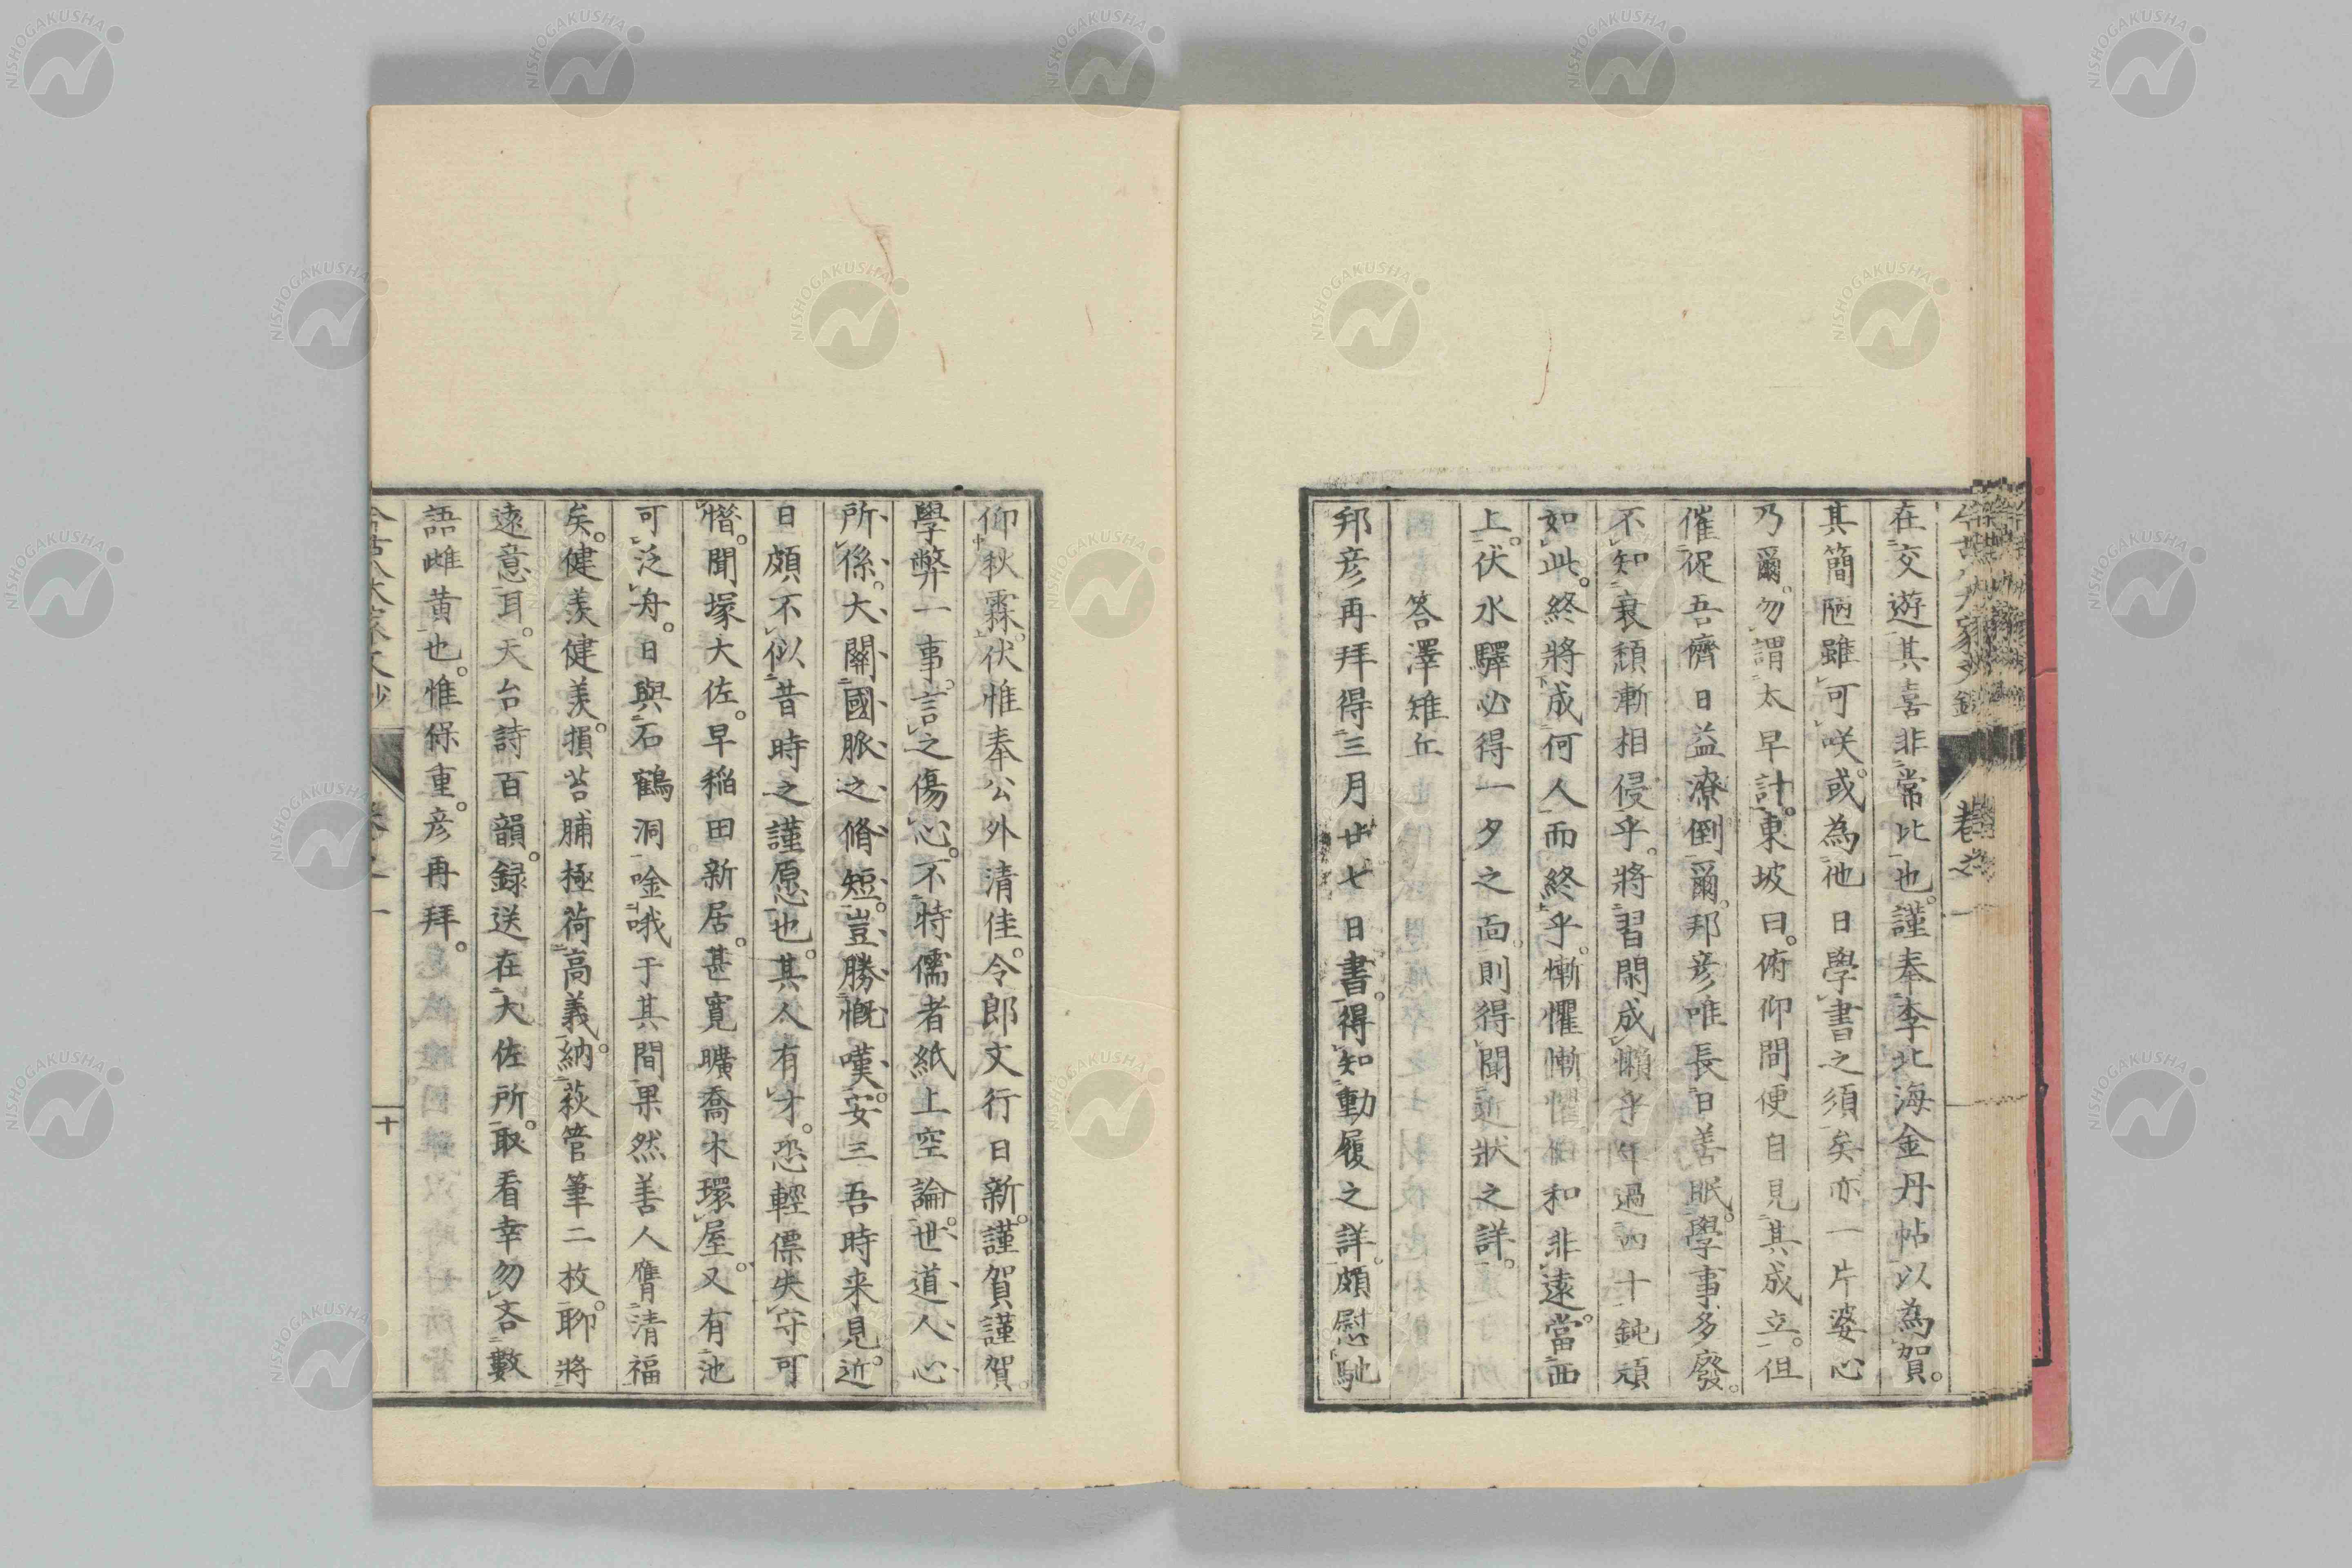 在交遊其喜非常比也。謹奉李北海金丹帖以為賀。
其簡陋雖可咲。或為他日學書之須矣亦一片婆心
乃爾。勿謂太早計。東坡曰。俯仰間便自見其成立。但
催促吾儕日益潦倒爾。邦彦唯長日善眠。學事多廢。
不知衰頽漸相侵乎。將習閑成懶乎年過四十鈍頑
如此。終將成何人而終乎。慚懼慚懼但和非遠。當西
上。伏水驛必得一夕之面。則得聞近狀之詳。
答澤雉丘
邦彦再拜得三月廿七日書。得知動履之詳。頗慰馳
仰秋霖。伏惟奉公外清佳。令郎文行日新。謹賀謹賀。
學弊一事。言之傷心。不特儒者紙上空論。世道人心
所係。大關國脈之脩短。豈勝慨嘆。安三吾時来見。近
日頗不似昔時之謹愿也。其人有才。恐輕僄失守可
憯。聞塚大佐。早稲田新居。甚寬曠喬木環屋。又有池
可泛舟。日與石鶴洞唫哦于其間果然善人膺清福
矣。健羨健羨。損苔脯極荷高義。納萩管筆二枚。聊將
遠意耳。天台詩百韻。録送在大佐所。取看幸勿吝數
語雌黄也。惟保重。彦再拜。
卷之一
十
NISHOGAKUSHA